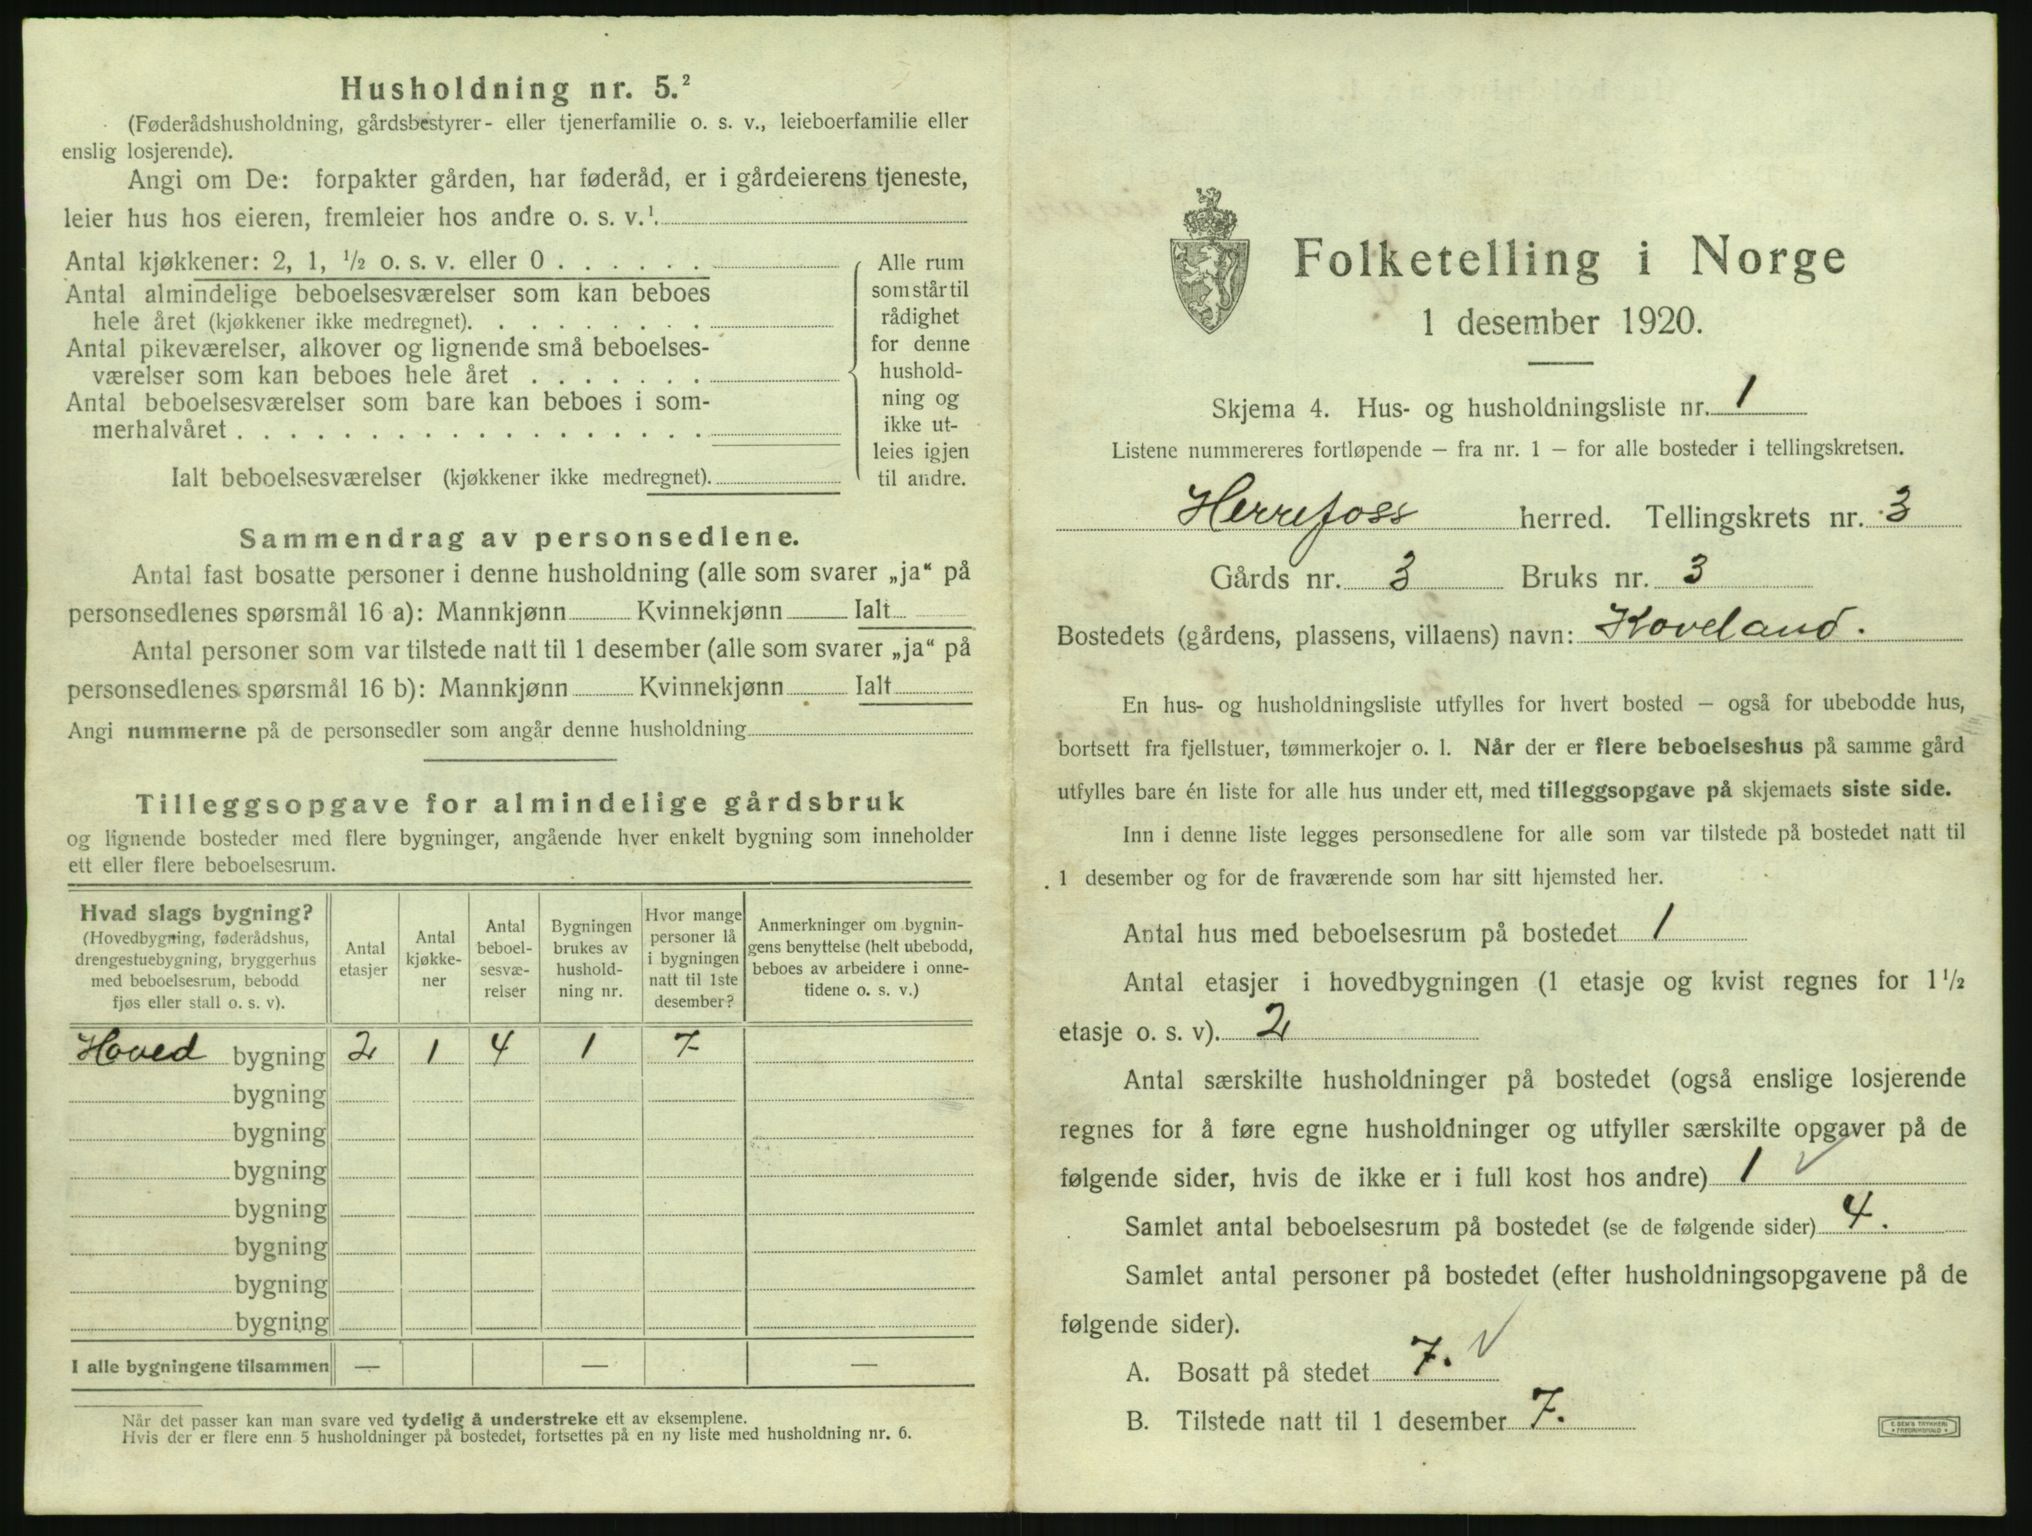 Husholdning nr. 5.²
(Føderådshusholdning, gårdsbestyrer- eller tjenerfamilie o. s. v., leieboerfamilie eller
enslig losjerende).
Angi om De: forpakter gården, har føderåd, er i gårdeierens tjeneste,
leier hus hos eieren, fremleier hos andre o. s. v.¹
Antal kjøkkener: 2, 1, ½ o. s. v. eller 0 . . . . . .
Antal almindelige beboelsesværelser som kan beboes
hele året (kjøkkener ikke medregnet). . . . . . . . .
Antal pikeværelser, alkover og lignende små beboelses-
værelser som kan beboes hele året . . . . . . .
Antal beboelsesværelser som bare kan beboes i som-
merhalvåret . . . . . . . . . . . . . . . . . .
Ialt beboelsesværelser (kjøkkener ikke medregnet).
Alle rum
som står til
rådighet
for denne
hushold-
ning og
ikke ut-
leies igjen
til andre.
Sammendrag av personsedlene.
Antal fast bosatte personer i denne husholdning (alle som svarer „ja“ på
personsedlenes spørsmål 16 a): Mannkjønn Kvinnekjønn Ialt
Antal personer som var tilstede natt til 1 desember (alle som svarer „ja“ på
personsedlenes spørsmål 16 b): Mannkjønn Kvinnekjønn Ialt
Angi nummerne på de personsedler som angår denne husholdning
Tilleggsopgave for almindelige gårdsbruk
og lignende bosteder med flere bygninger, angående hver enkelt bygning som inneholder
ett eller flere beboelsesrum.
Hvad slags bygning?
(Hovedbygning, føderådshus,
drengestuebygning, bryggerhus
med beboelsesrum, bebodd
fjøs eller stall o. s. v).
Antal
etasjer
Antal
kjøkke-
ner
Antal
beboel-
sesvæ-
relser
Bygningen
brukes av
hushold-
ning nr.
Hvor mange
personer lå
i bygningen
natt til 1ste
desember?
Anmerkninger om bygnin-
gens benyttelse (helt ubebodd,
beboes av arbeidere i onne-
tidene o. s. v.)
Hoved bygning 2 1 4 1 7
bygning
bygning
bygning
bygning
bygning
bygning
bygning
I alle bygningene tilsammen — — —
Når det passer kan man svare ved tydelig å understreke ett av eksemplene.
Hvis der er flere enn 5 husholdninger på bostedet, fortsettes på en ny liste med husholdning nr. 6.
Folketelling i Norge
1 desember 1920.
Skjema 4. Hus- og husholdningsliste nr. 1
Listene nummereres fortløpende — fra nr. 1 — for alle bosteder i tellingskretsen.
Herrefoss herred. Tellingskrets nr. 3
Gårds nr. 3 Bruks nr. 3
Bostedets (gårdens, plassens, villaens) navn: Koveland.
En hus- og husholdningsliste utfylles for hvert bosted — også for ubebodde hus,
bortsett fra fjellstuer, tømmerkojer o. l. Når der er flere beboelseshus på samme gård
utfylles bare én liste for alle hus under ett, med tilleggsopgave på skjemaets siste side.
Inn i denne liste legges personsedlene for alle som var tilstede på bostedet natt til
1 desember og for de fraværende som har sitt hjemsted her.
Antal hus med beboelsesrum på bostedet 1
Antal etasjer i hovedbygningen (1 etasje og kvist regnes for 1 ½
etasje o. s. v). 2
Antal særskilte husholdninger på bostedet (også enslige losjerende
regnes for å føre egne husholdninger og utfyller særskilte opgaver på de
følgende sider, hvis de ikke er i full kost hos andre) 1
Samlet antal beboelsesrum på bostedet (se de følgende sider) 4.
Samlet antal personer på bostedet (efter husholdningsopgavene på de
følgende sider).
A. Bosatt på stedet 7.
B. Tilstede natt til 1 desember 7.
E. SEM'S TRYKKERI
FREDRIKSHALD